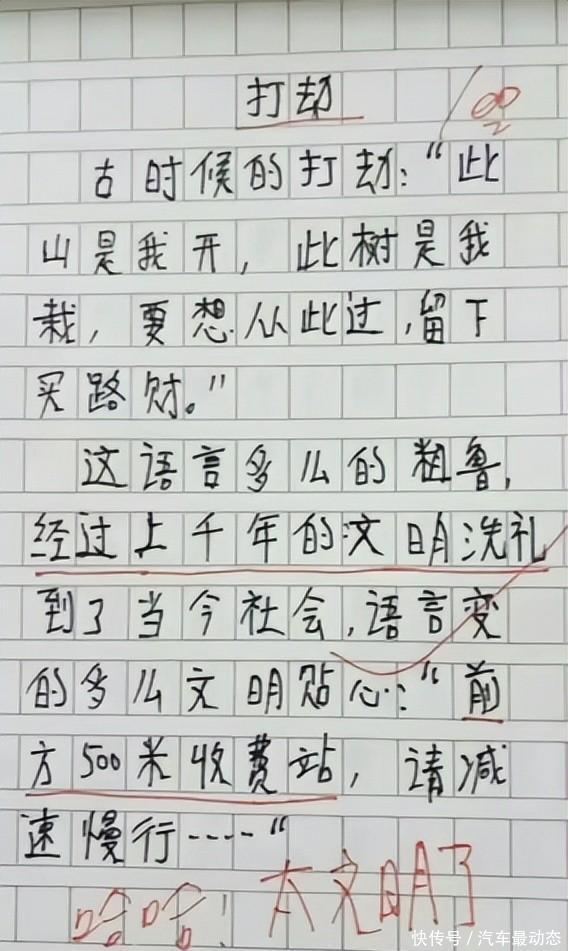 打劫
100
古时候的打劫："此
山是我开，此树是我
栽，要想从此过，留下
买路财。"
这语言多么的粗鲁，
经过上千年的文明洗礼
到了当今社会，语言变
的多么文明贴心："前
方500米收费站，请减
速慢行----"
哈哈！太文明了
快传号／汽车最动态